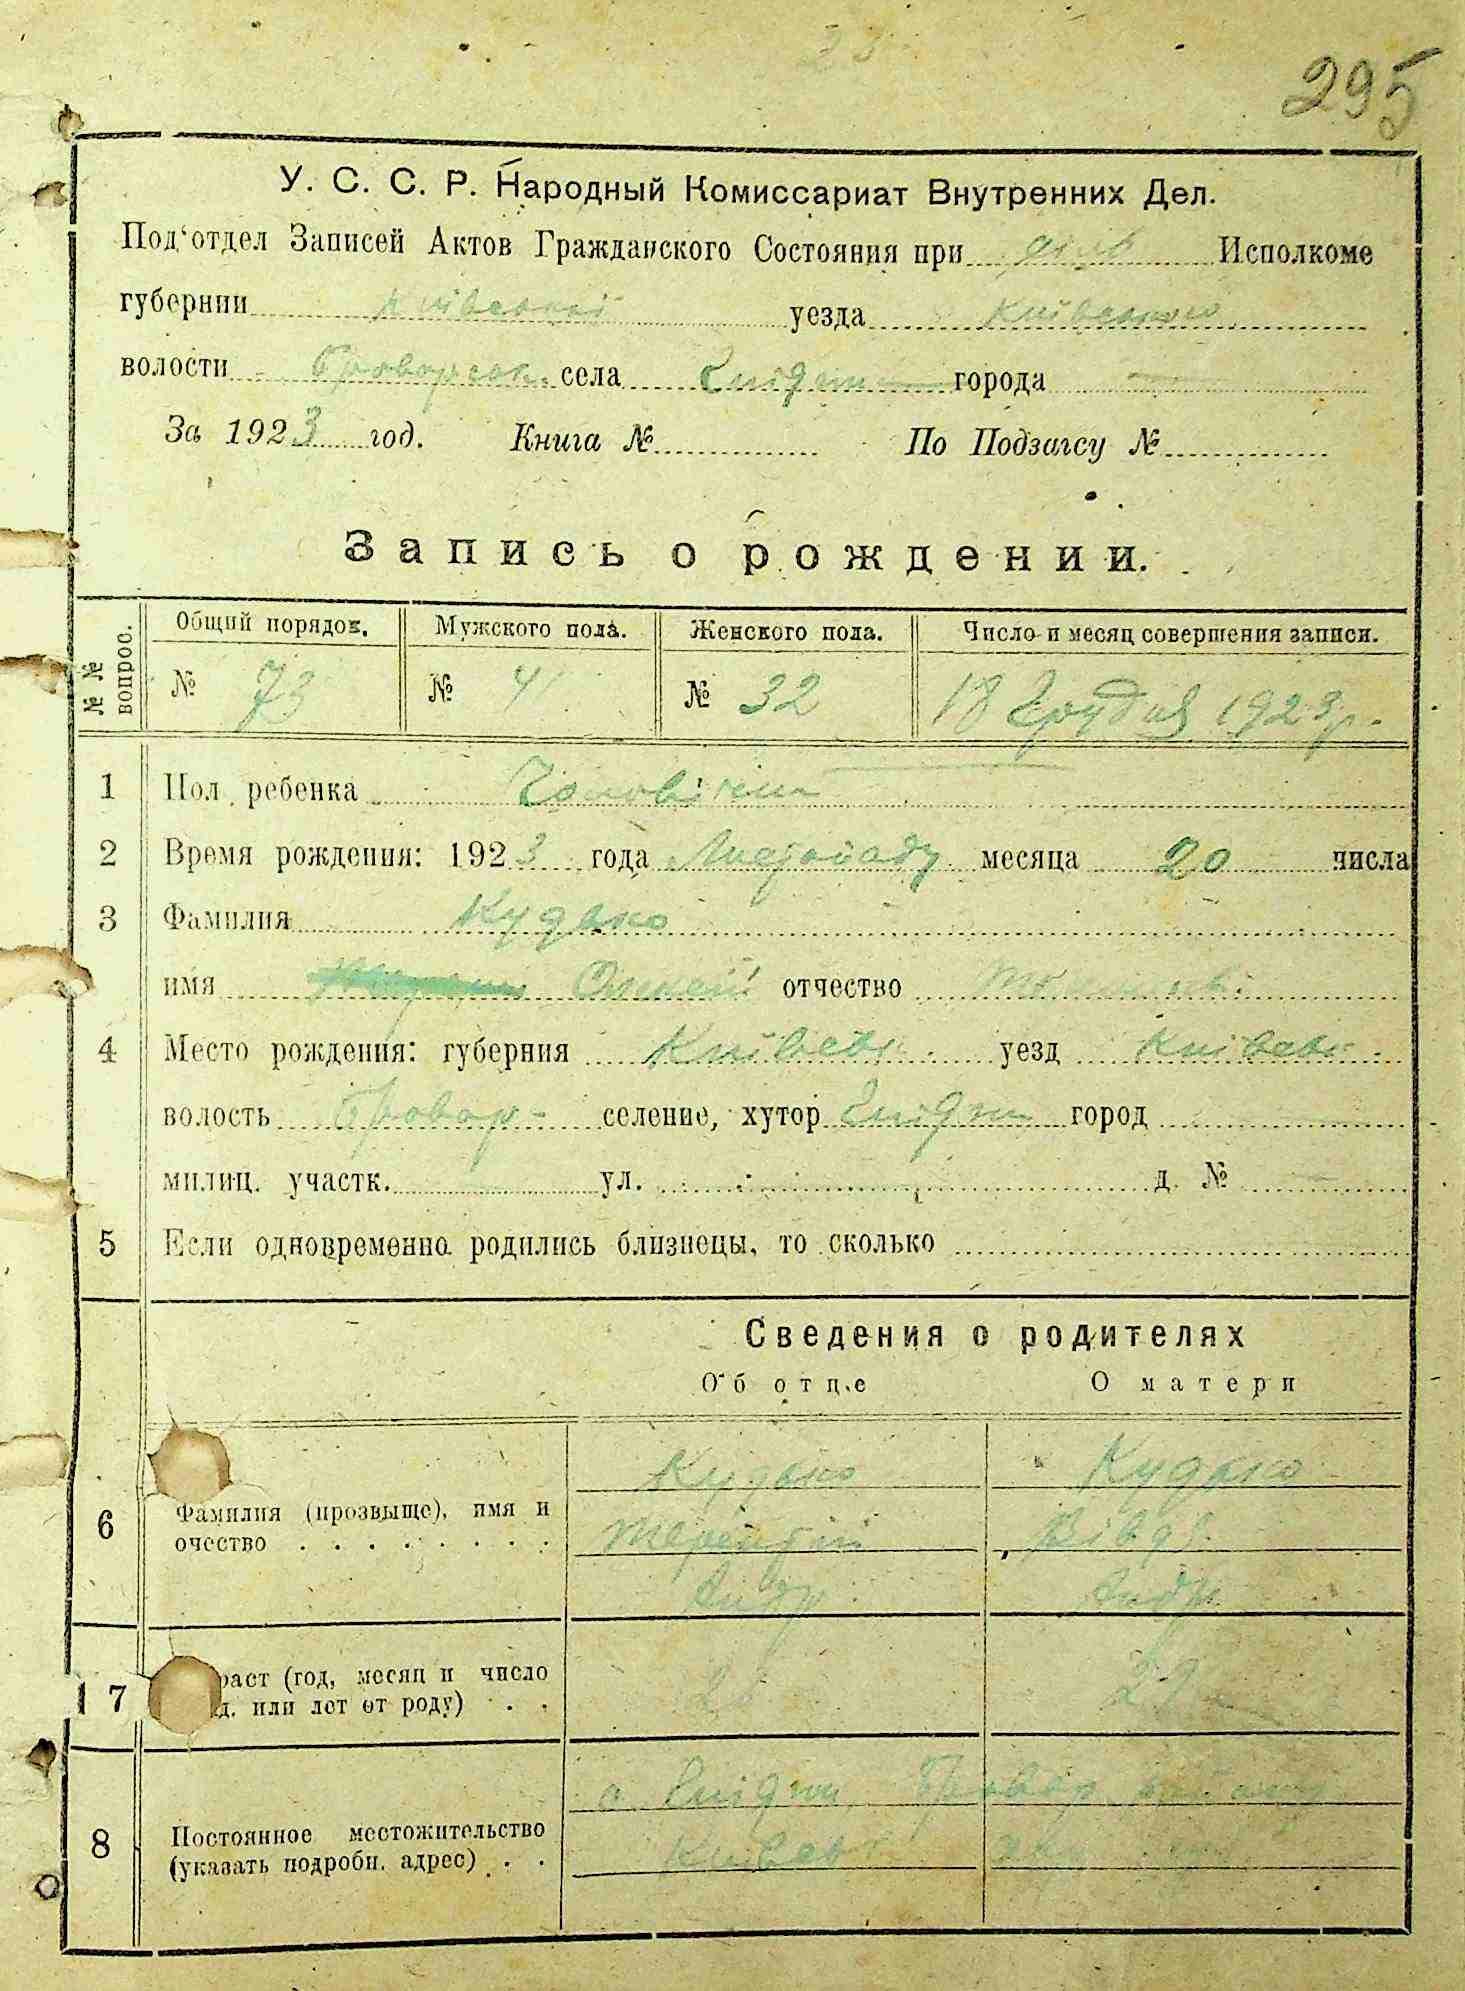 295
У. С. С. Р. Народный Комиссариат Внутренних Дел.
Под‘отдел Записей Актов Гражданского Состояния при Исполкоме
губернии Київської уезда Київського
волости Броворськ. села города —
За 1923 год. Книга № По Подзагсу №
Запись о рождении.
№ № вопрос. Общий порядок. Мужского пола. Женского пола. Число и месяц совершения записи.
№ 73 № 41 № 32 18 Грудня 1923 р.
1 Пол ребенка Чоловічий
2 Время рождения: 1923 года Листопаду месяца 20 числа
3 Фамилия Кудько
имя отчество
4 Место рождения: губерния Київськ. уезд Київськ.
волость Бровар- селение, хутор город
милиц. участк. ул. д. №
5 Если одновременно родились близнецы, то сколько
Сведения о родителях
Об отце О матери
Кудько Кудько
6 Фамилия (прозвыще), имя и Терентій
очество Андр. Андр.
17 раст (год, месяц и число 29
д. или лет от роду)
с. Бровар.
8 Постоянное местожительство
(указать подробн. адрес) Київськ